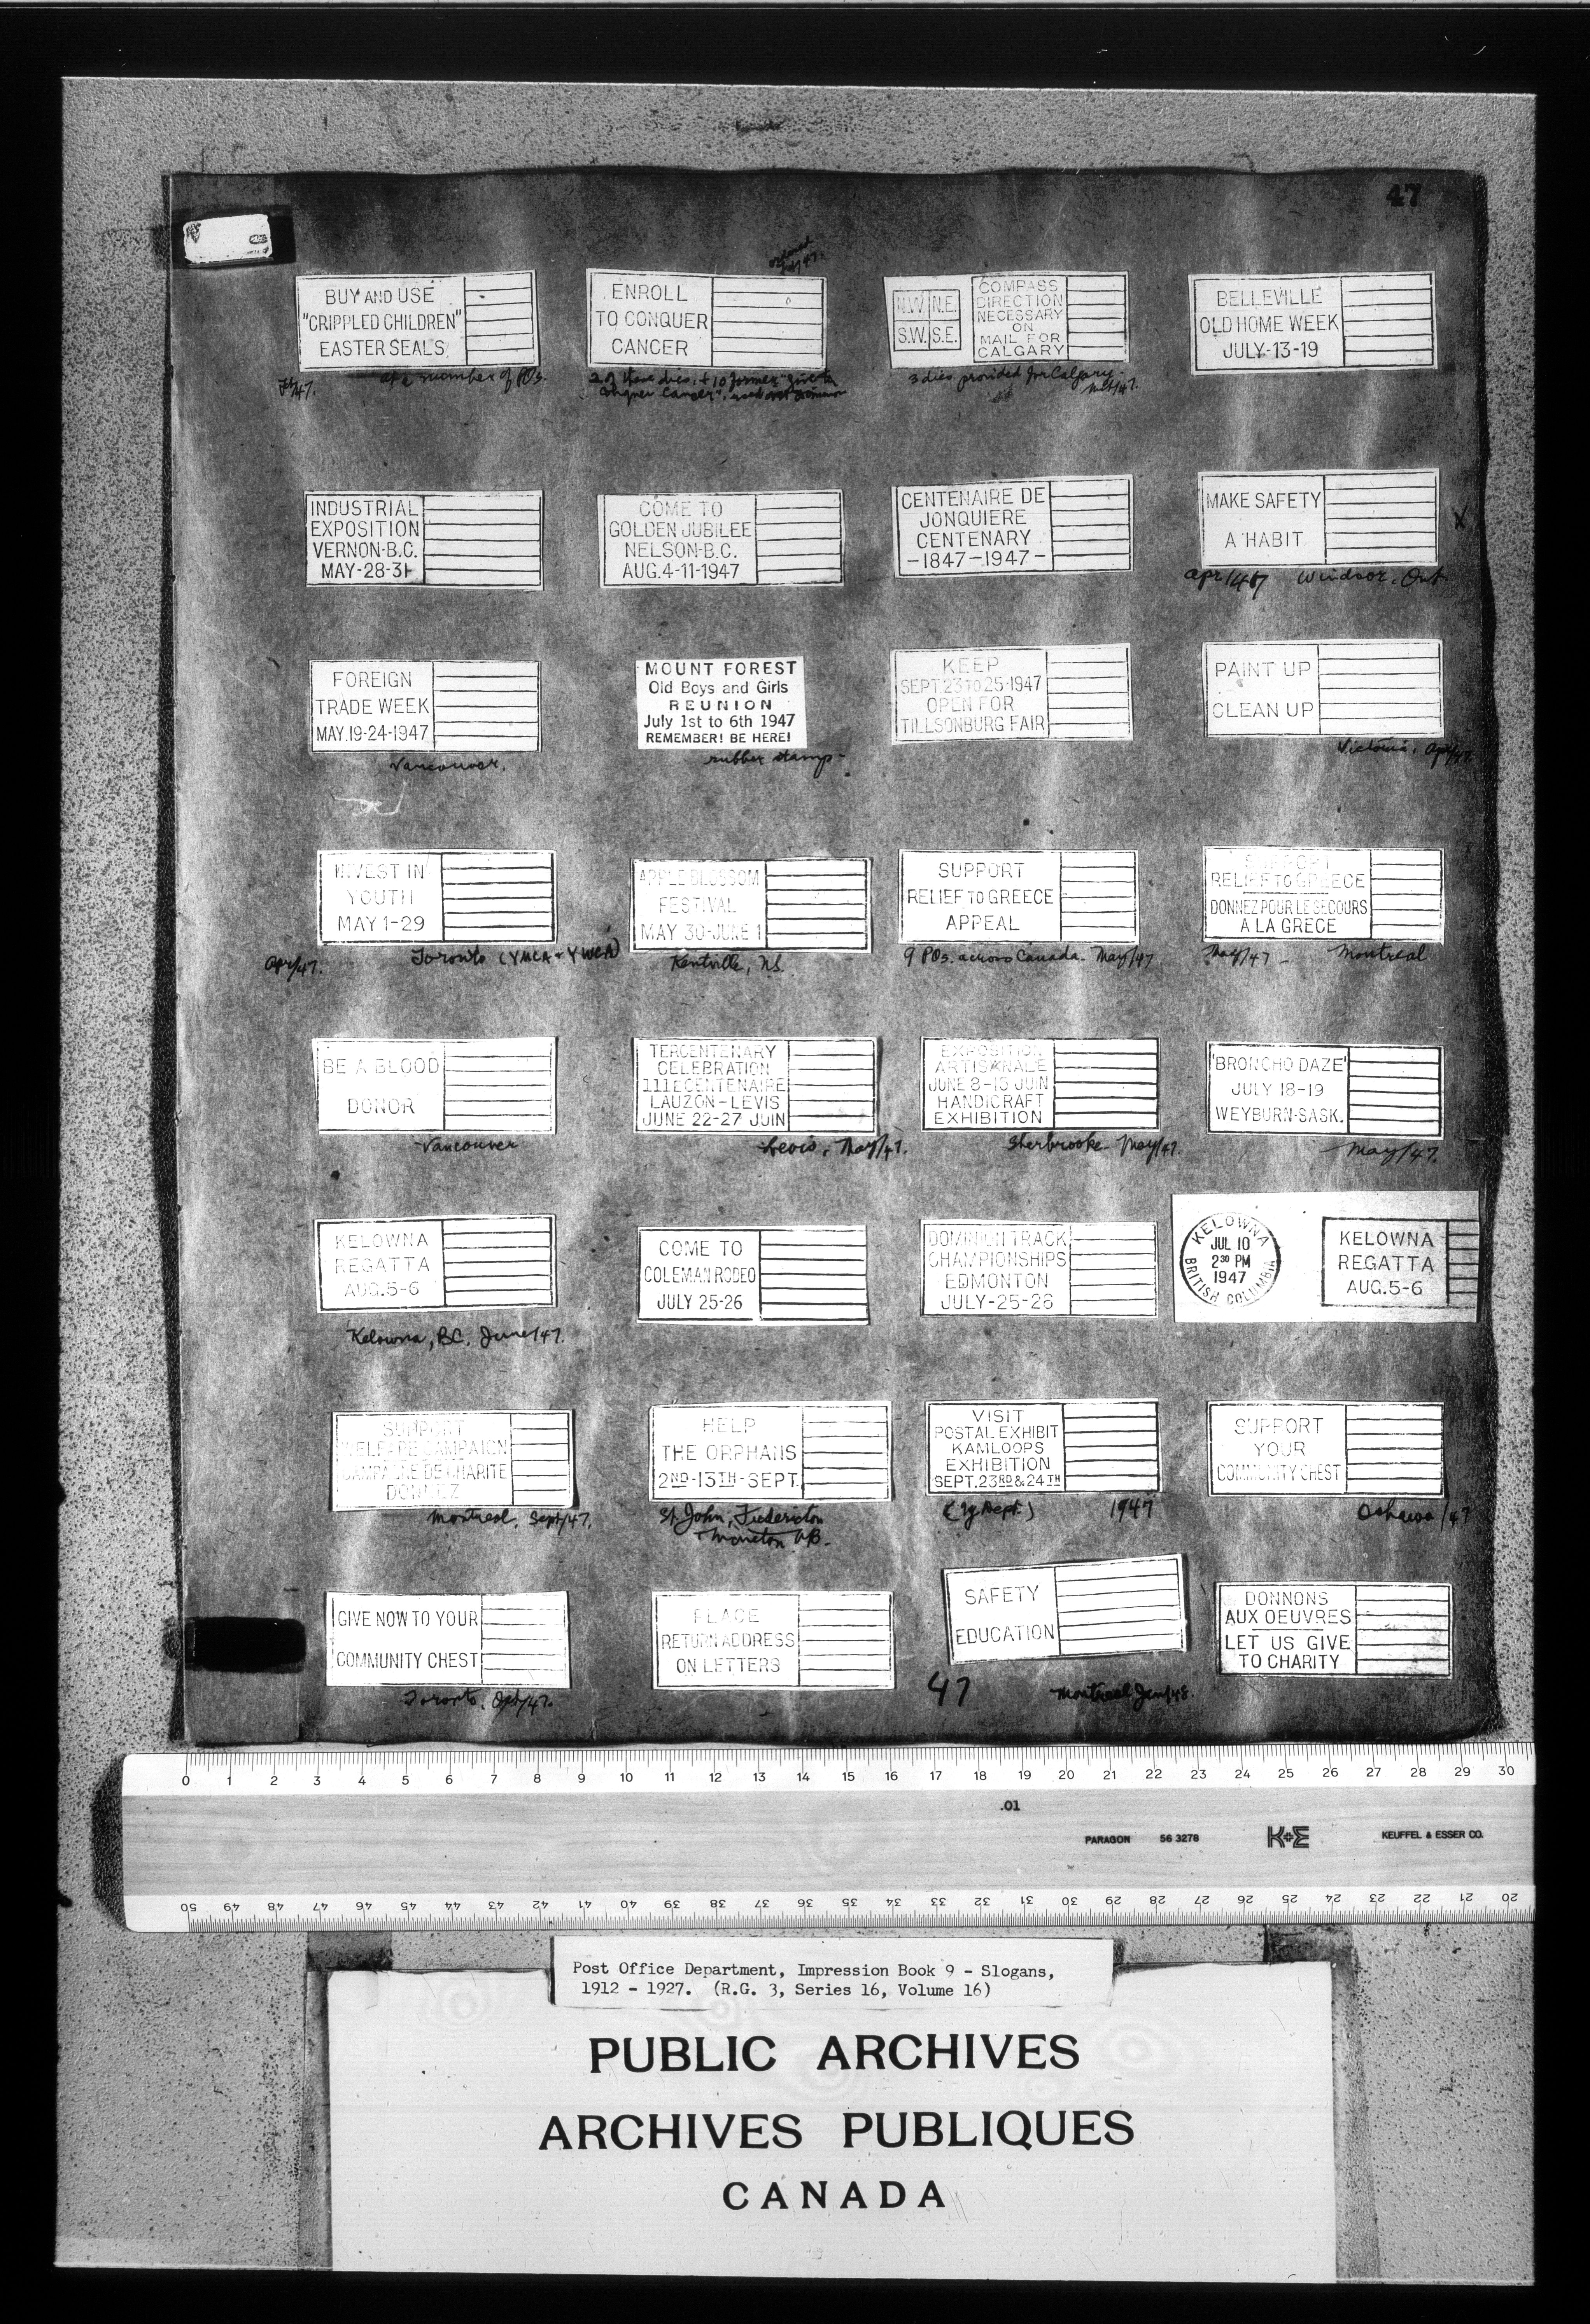 47
BUY AND USE
"CRIPPLED CHILDREN"
EASTER SEALS
Feb/47. at a number of POs.
ordered
ENROLL
TO CONQUER
CANCER
2 of these dies, + 10 former "give to
conquer cancer", used over Dominion
N.W. N.E.
S.W. S.E.
COMPASS
DIRECTION
NECESSARY
ON
MAIL FOR
CALGARY
3 dies provided for Calgary.
BELLEVILLE
OLD HOME WEEK
JULY-13-19
INDUSTRIAL
EXPOSITION
VERNON-B.C.
MAY-28-31
COME TO
GOLDEN JUBILEE
NELSON-B.C.
AUG.4-11-1947
CENTENAIRE DE
JONQUIERE
CENTENARY
-1847-1947-
MAKE SAFETY
A HABIT
X
Apr/47 Windsor, Ont
FOREIGN
TRADE WEEK
MAY.19-24-1947
Vancouver.
MOUNT FOREST
Old Boys and Girls
REUNION
July 1st to 6th 1947
REMEMBER! BE HERE!
rubber stamp-
KEEP
SEPT.23 TO 25-1947
OPEN FOR
TILLSONBURG FAIR
PAINT UP
CLEAN UP
Victoria. Apr/47.
INVEST IN
YOUTH
MAY 1-29
Apr/47. Toronto (YMCA + YWCA)
APPLE BLOSSOM
FESTIVAL
MAY 30-JUNE 1
Kentville, N.S.
SUPPORT
RELIEF TO GREECE
APPEAL
9 POs. across Canada. May/47
SUPPORT
RELIEF TO GREECE
DONNEZ POUR LE SECOURS
A LA GRECE
May/47 - Montreal
BE A BLOOD
DONOR
Vancouver
TERCENTENARY
CELEBRATION
111ECENTENAIRE
LAUZON-LEVIS
JUNE 22-27 JUIN
Levis, May/47.
EXPOSITION
ARTISANALE
JUNE 8-15 JUIN
HANDICRAFT
EXHIBITION
Sherbrooke May/47.
'BRONCHO DAZE'
JULY 18-19
WEYBURN-SASK.
May/47.
KELOWNA
REGATTA
AUG.5-6
Kelowna, BC. June/47.
COME TO
COLEMAN RODEO
JULY 25-26
DOMINION TRACK
CHAMPIONSHIPS
EDMONTON
JULY-25-26
KELOWNA
JUL 10
2³⁰ PM
1947
BRITISH COLUMBIA
KELOWNA
REGATTA
AUG.5-6
SUPPORT
WELFARE CAMPAIGN
CAMPAGNE DE CHARITE
DONNEZ
Montreal, Sept/47.
HELP
THE ORPHANS
2ND-13TH-SEPT.
St. John, Fredericton
+ Moncton NB.
VISIT
POSTAL EXHIBIT
KAMLOOPS
EXHIBITION
SEPT.23RD&24TH
1947
SUPPORT
YOUR
COMMUNITY CHEST
Oshawa/47
GIVE NOW TO YOUR
COMMUNITY CHEST
Toronto.
PLACE
RETURN ADDRESS
ON LETTERS
SAFETY
EDUCATION
47 Montreal Jan/48
DONNONS
AUX OEUVRES
LET US GIVE
TO CHARITY
0 1 2 3 4 5 6 7 8 9 10 11 12 13 14 15 16 17 18 19 20 21 22 23 24 25 26 27 28 29 30
.01
PARAGON 56 3278 K+E KEUFFEL & ESSER CO.
50 49 48 47 46 45 44 43 42 41 40 39 38 37 36 35 34 33 32 31 30 29 28 27 26 25 24 23 22 21 20
Post Office Department, Impression Book 9 - Slogans,
1912 - 1927. (R.G. 3, Series 16, Volume 16)
PUBLIC ARCHIVES
ARCHIVES PUBLIQUES
CANADA